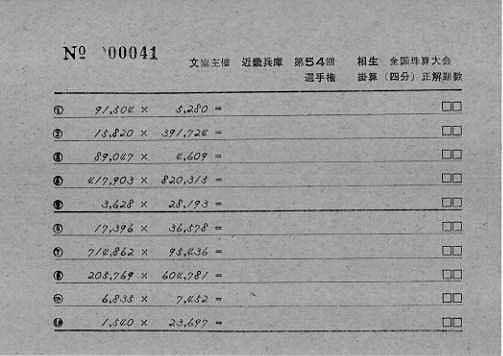 № 00041
文協主催 近畿兵庫 第54回 相生 全国珠算大会
選手権 掛算 (四分) 正解題数
① 91,504 × 5,280 = □□
② 15,820 × 391,724 = □□
③ 89,047 × 4,609 = □□
④ 417,903 × 820,315 = □□
⑤ 3,628 × 28,193 = □□
⑥ 17,396 × 36,578 = □□
⑦ 714,862 × 95,436 = □□
⑧ 205,769 × 604,781 = □□
⑨ 6,835 × 7,452 = □□
⑩ 1,540 × 23,697 = □□